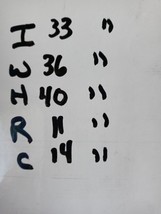 I 33 "
W 36 "
H 40 "
R 11 "
C 14 "